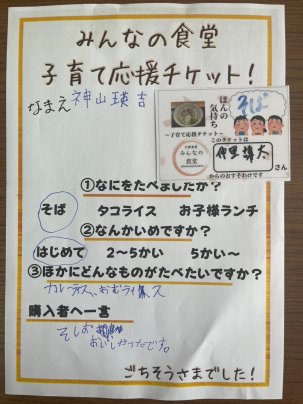 みんなの食堂
子育て応援チケット!
なまえ 神山瑛吉
そば
ほんの
気持ち
~子育て応援チケット~
みんなの
食堂
このチケットは
さん
からのおすそわけです
①なにをたべましたか?
そば タコライス お子様ランチ
②なんかいめですか?
はじめて 2~5かい 5かい~
③ほかにどんなものがたべたいですか?
カレーライス、おむライス
購入者へ一言
おいしかったです。
ごちそうさまでした!